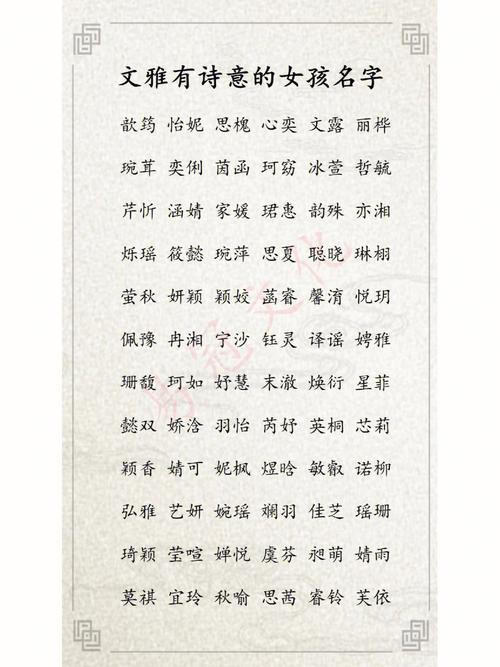 文雅有诗意的女孩名字
歆筠 怡妮 思槐 心奕 文露 丽桦
琬茸 奕俐 茵函 珂窈 冰萱 哲毓
芹忻 涵婧 家媛 珺惠 韵殊 亦湘
烁瑶 筱懿 琬萍 思夏 聪晓 琳栩
萤秋 妍颖 颖姣 菡睿 馨淯 悦玥
佩豫 冉湘 宁沙 钰灵 译谣 娉雅
珊馥 珂如 妤慧 末澈 焕衍 星菲
懿双 娇浛 羽怡 芮妤 英桐 芯莉
颖香 婧可 妮枫 煜晗 敏叡 诺柳
弘雅 艺妍 婉瑶 斓羽 佳芝 瑶珊
琦颖 莹暄 婵悦 虞芬 昶萌 婧雨
莫祺 宜玲 秋喻 思茜 睿铃 芙依